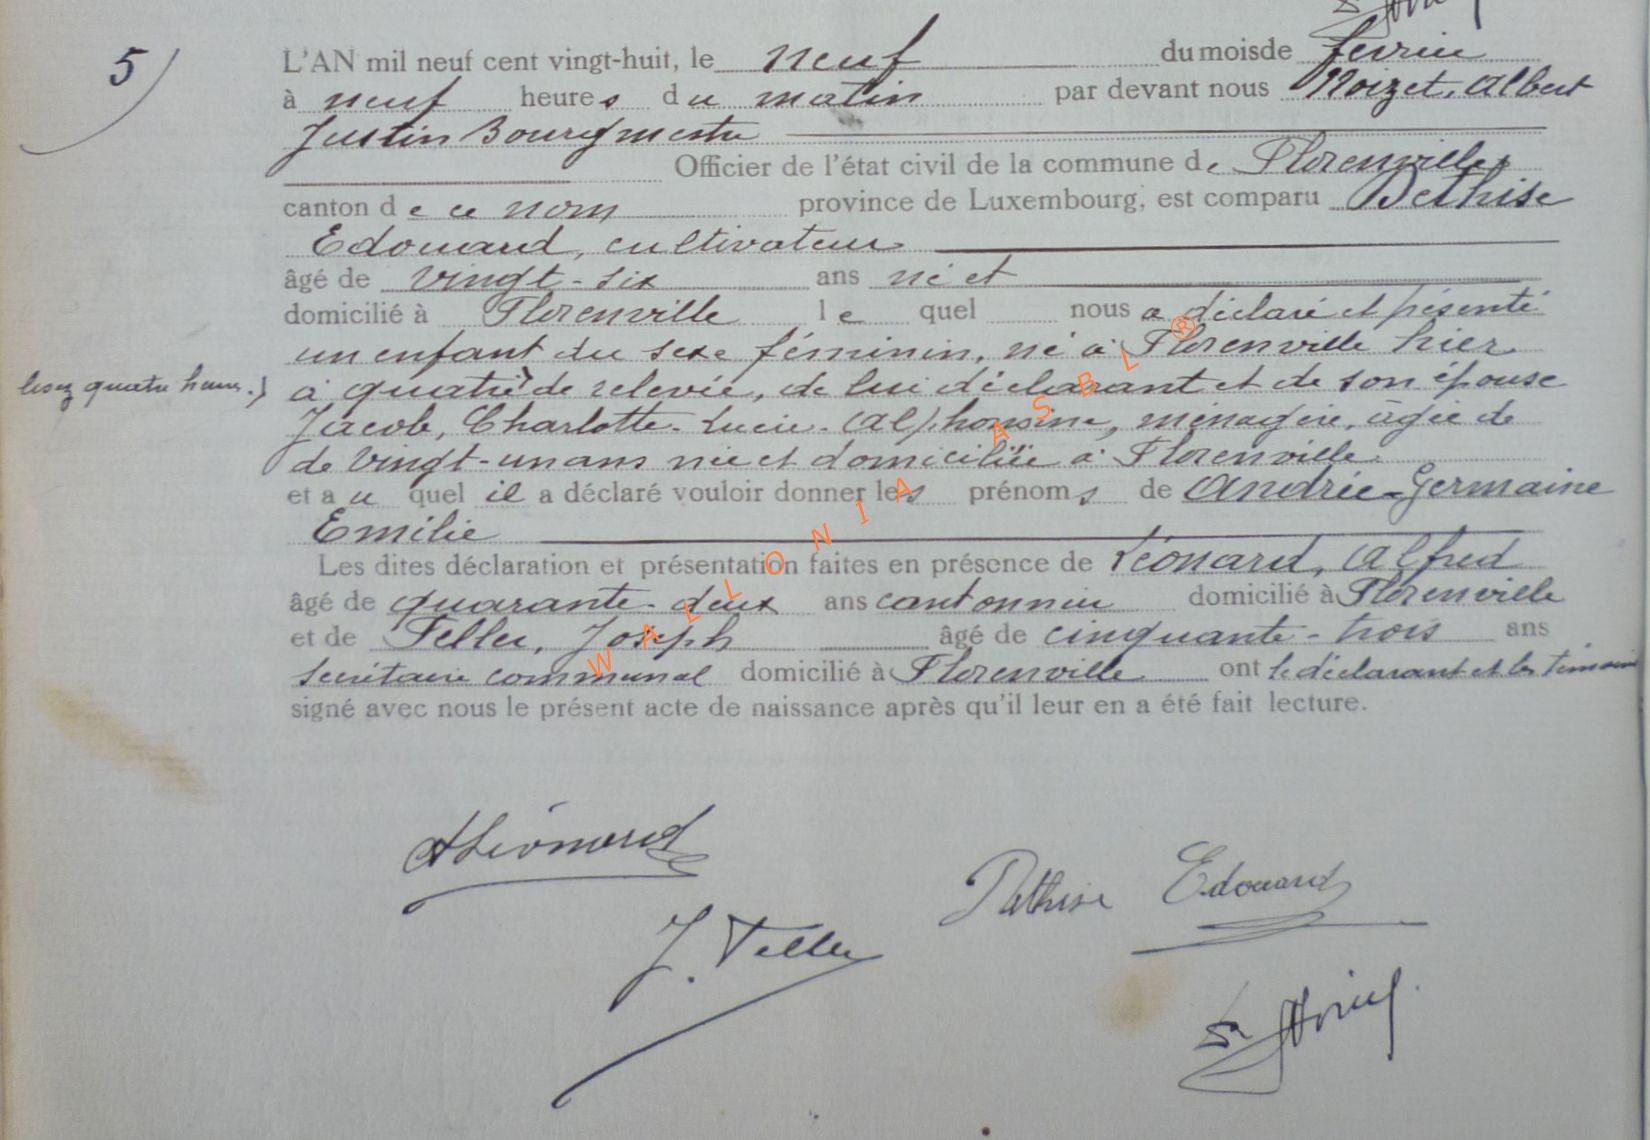 5)
L'AN mil neuf cent vingt-huit, le neuf du mois de février
à neuf heures du matin par devant nous Noizet, Albert
Justin Bourgmestre
Officier de l'état civil de la commune de Florenville
canton de ce nom province de Luxembourg, est comparu Dethise
Edouard, cultivateur
âgé de vingt-six ans né et
domicilié à Florenville lequel nous a déclaré et présenté
un enfant du sexe féminin, né à Florenville hier
lisez quatre heures.)
à quatre de relevée, de lui déclarant et de son épouse
Jacob, Charlotte-Lucie-Alphonsine, ménagère, âgée de
de vingt-un ans née et domiciliée à Florenville.
et auquel il a déclaré vouloir donner les prénoms de Andrée-Germaine
Emilie
Les dites déclaration et présentation faites en présence de Léonard, Alfred
âgé de quarante-deux ans cantonnier domicilié à Florenville
et de Feller, Joseph âgé de cinquante-trois ans
secrétaire communal domicilié à Florenville ont le déclarant et les témoins
signé avec nous le présent acte de naissance après qu'il leur en a été fait lecture.
ALéonard
Dethise Edouard
J. Feller
WALLONIA ASBL ®